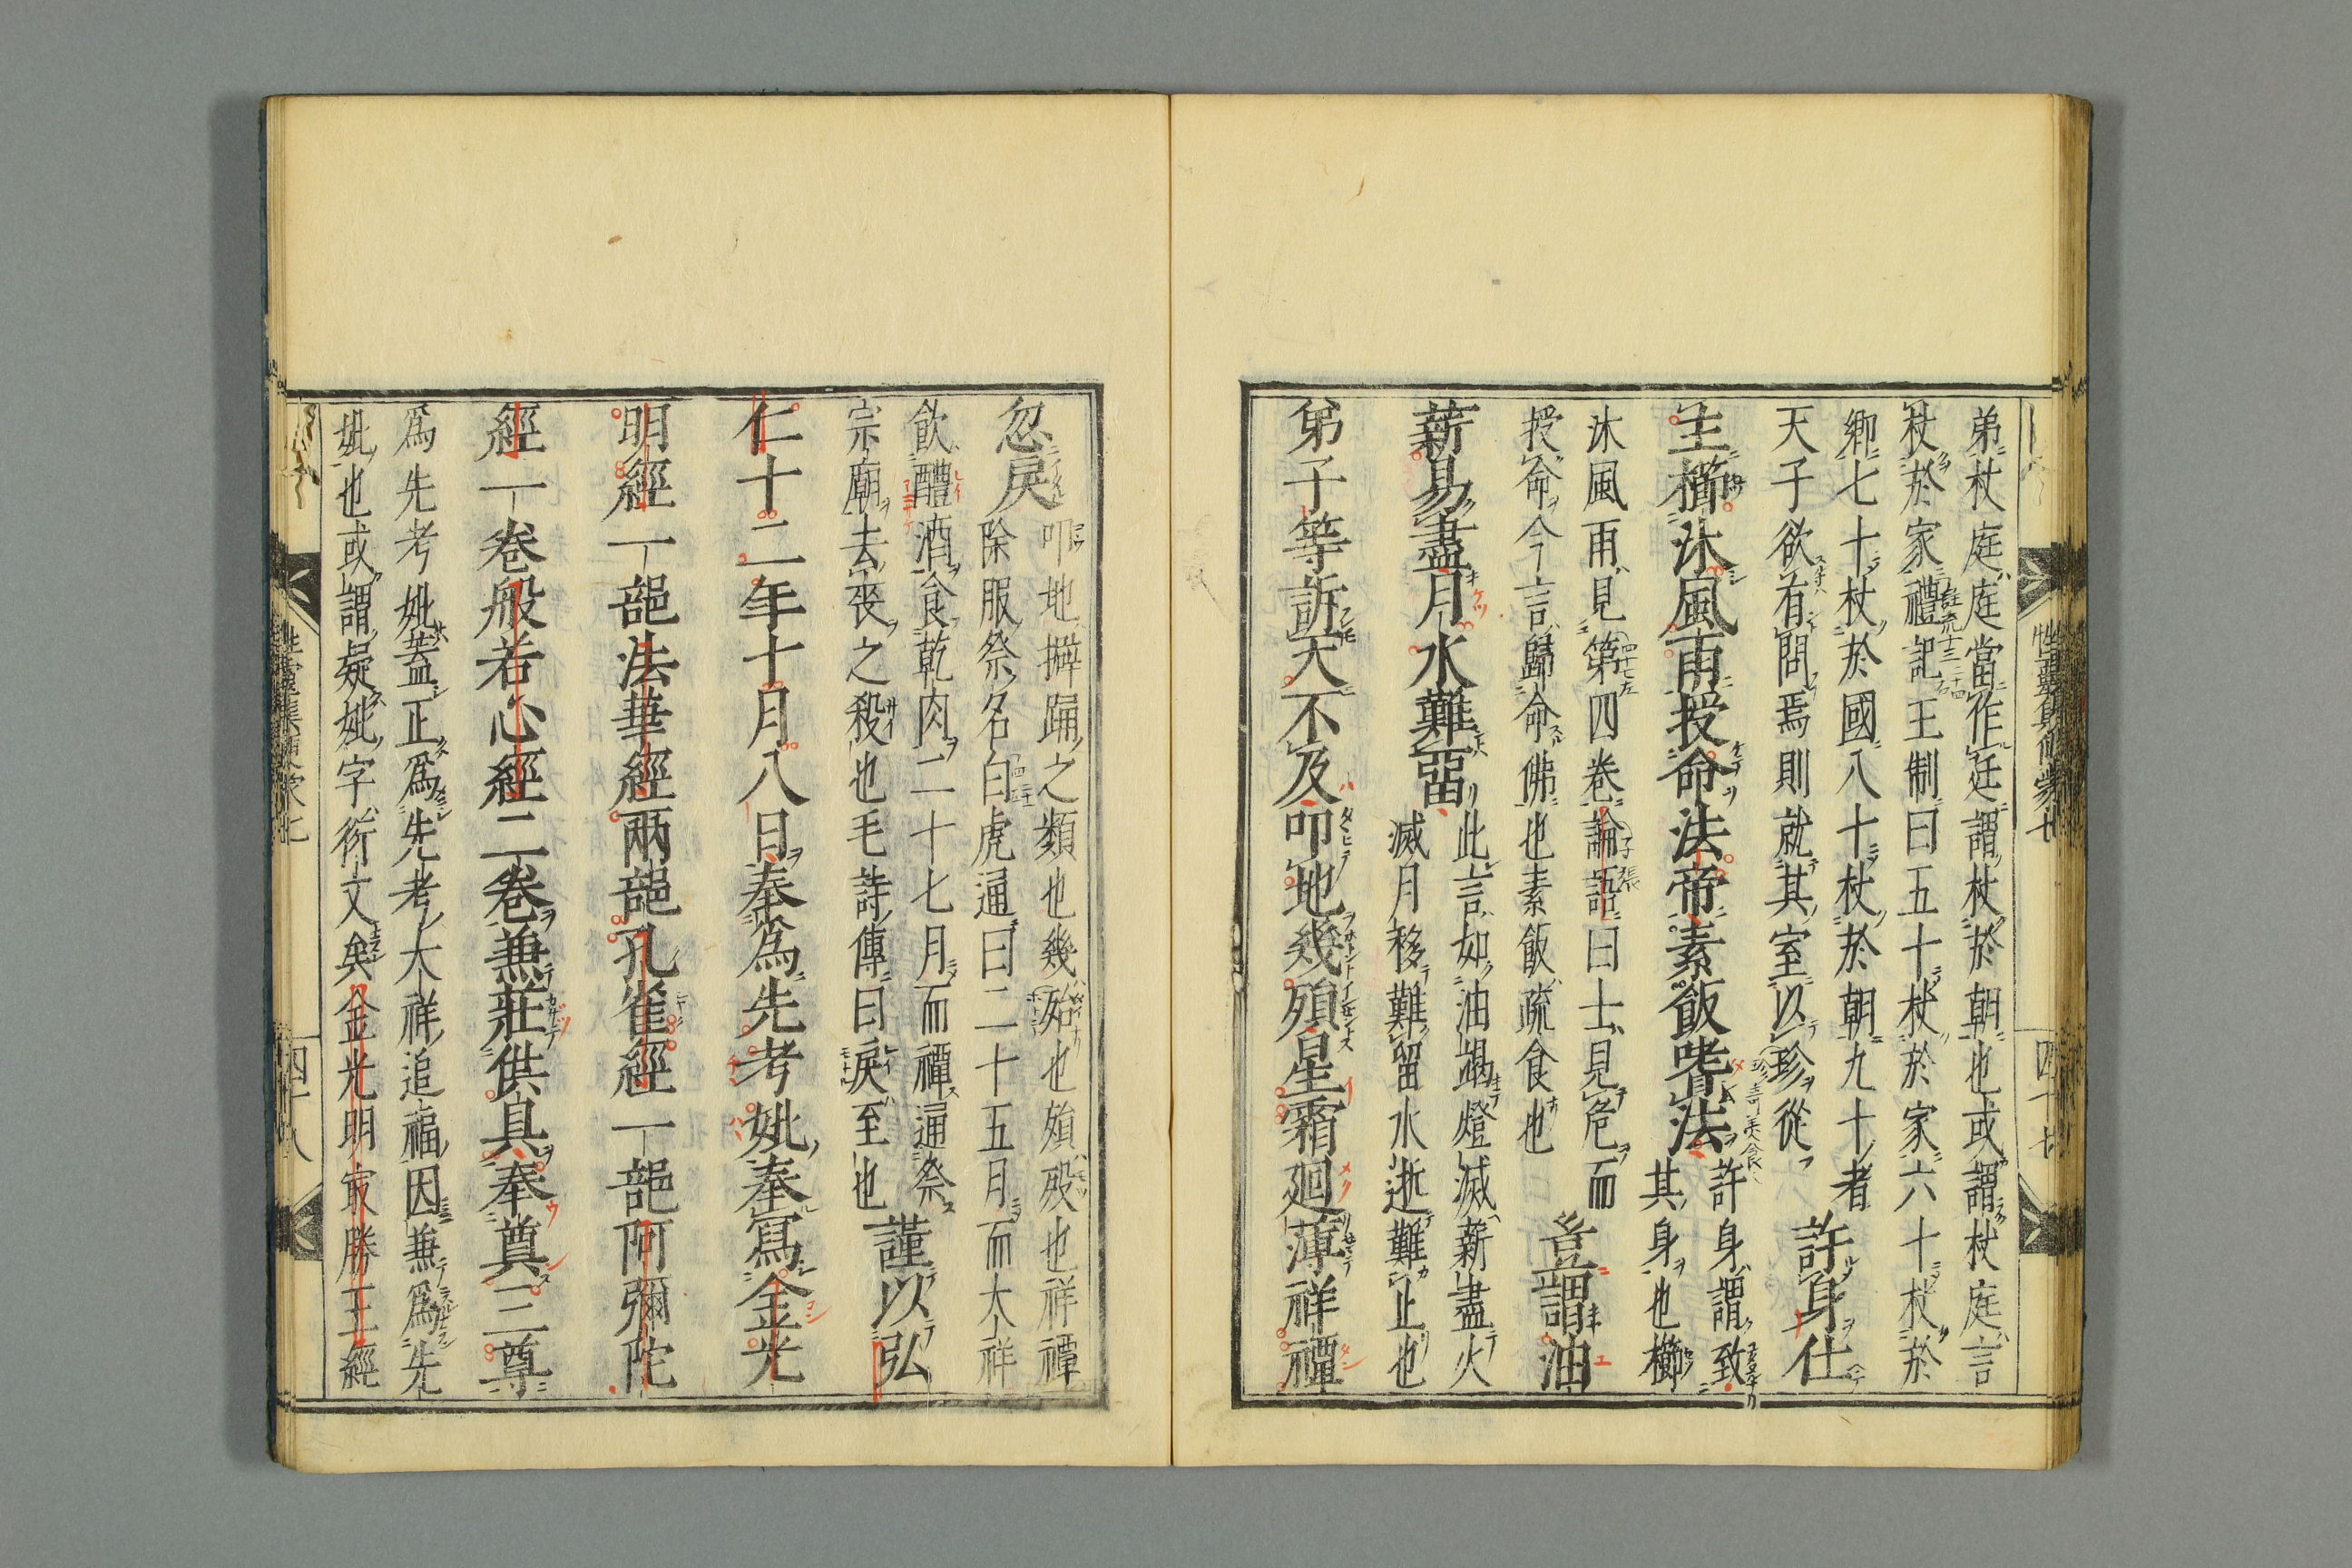 弟杖庭庭當作廷謂杖於朝也或謂杖庭言
杖於家禮記王制曰五十杖於家六十杖於
鄉七十杖於國八十杖於朝九十者
天子欲有問焉則就其室以珍從
許身仕
主櫛沐風雨授命法帝素飯嗜法
許身謂致
其身也櫛
沐風雨見第四卷論語曰士見危而
授命今言歸命佛也素飯疏食也
豈謂油
薪易盡月水難畱
此言如油竭燈滅薪盡火
滅月移難留水逝難止也
弟子等訴天不及叩地幾殞星霜廻薄祥禫
忽戾
叩地擗踊之類也幾殆也殞歿也祥禫
除服祭名白虎通曰二十五月而大祥
飲醴酒食乾肉二十七月而禫通祭
宗廟去喪之殺也毛詩傳曰戾至也
謹以弘
仁十二年十月八日奉爲先考妣奉寫金光
明經一部法華經兩部孔雀經一部阿彌陀
經一卷般若心經二卷兼莊供具奉奠三尊
爲先考妣蓋正爲先考大祥追福因兼爲先
妣也或謂疑妣字衍文矣金光明最勝王經
四十七
四十八